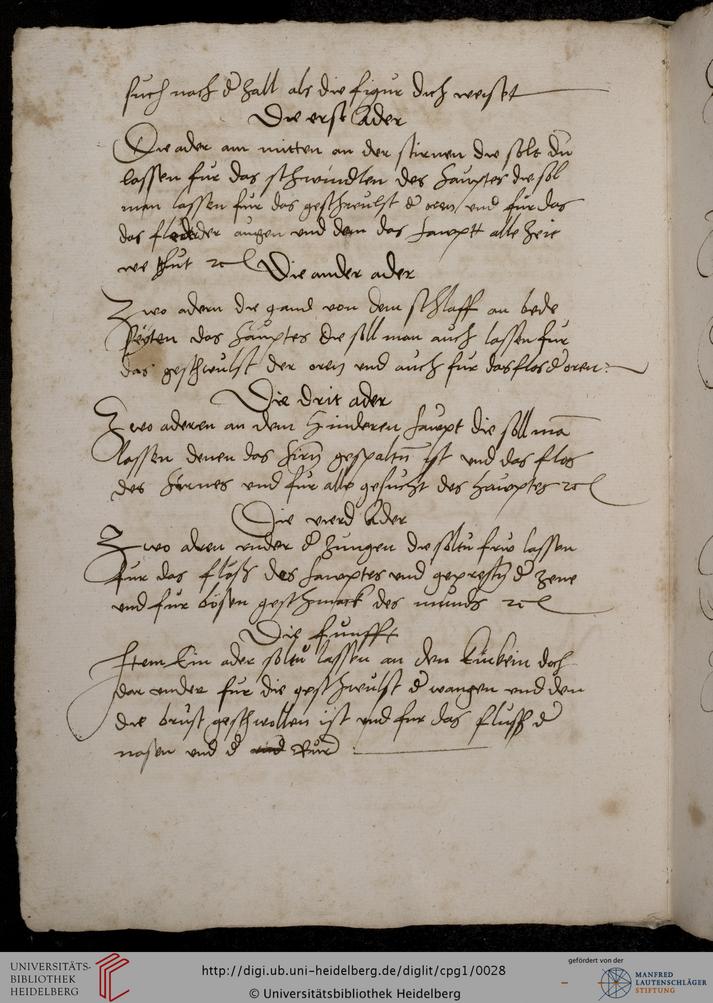 such nach d' zall als die figur dich weiset
Die erst Ader
Die ader am mitten an der stirnen die solt du
lassen fur das schwindlen des hauptes die sol
man lassen fur das geschwulst d' oren und fur das
das der augen und dem das haupt alle Zeit
we thut Die ander ader
Zwo adern die gand von dem schlaff an bede
seyten das hauptes die soll man auch lassen fur
das geschwulst der oren und auch fur das flos d' oren
Die drit ader
Zwo aderen an dem Hinderen haupt die soll ma
lassen denen das hirn gespalten ist und das flos
des hirnes und fur alle gesucht des hauptes
Die vierd Ader
Zwo adren under d' zungen die soltu lassen
fur das fluss des hauptes und gepresten d' zene
und fur bosen geschmack des munds
Die funfft
Item Ein ader soltu lassen an dem doch
dar under fur die geschwulst d' wangen und den
die brust geschwollen ist und fur das fluss d'
nasen und d'
UNIVERSITÄTS-
BIBLIOTHEK
HEIDELBERG
http://digi.ub.uni-heidelberg.de/diglit/cpg1/0028
© Universitätsbibliothek Heidelberg
gefördert von der
MANFRED
LAUTENSCHLÄGER
STIFTUNG